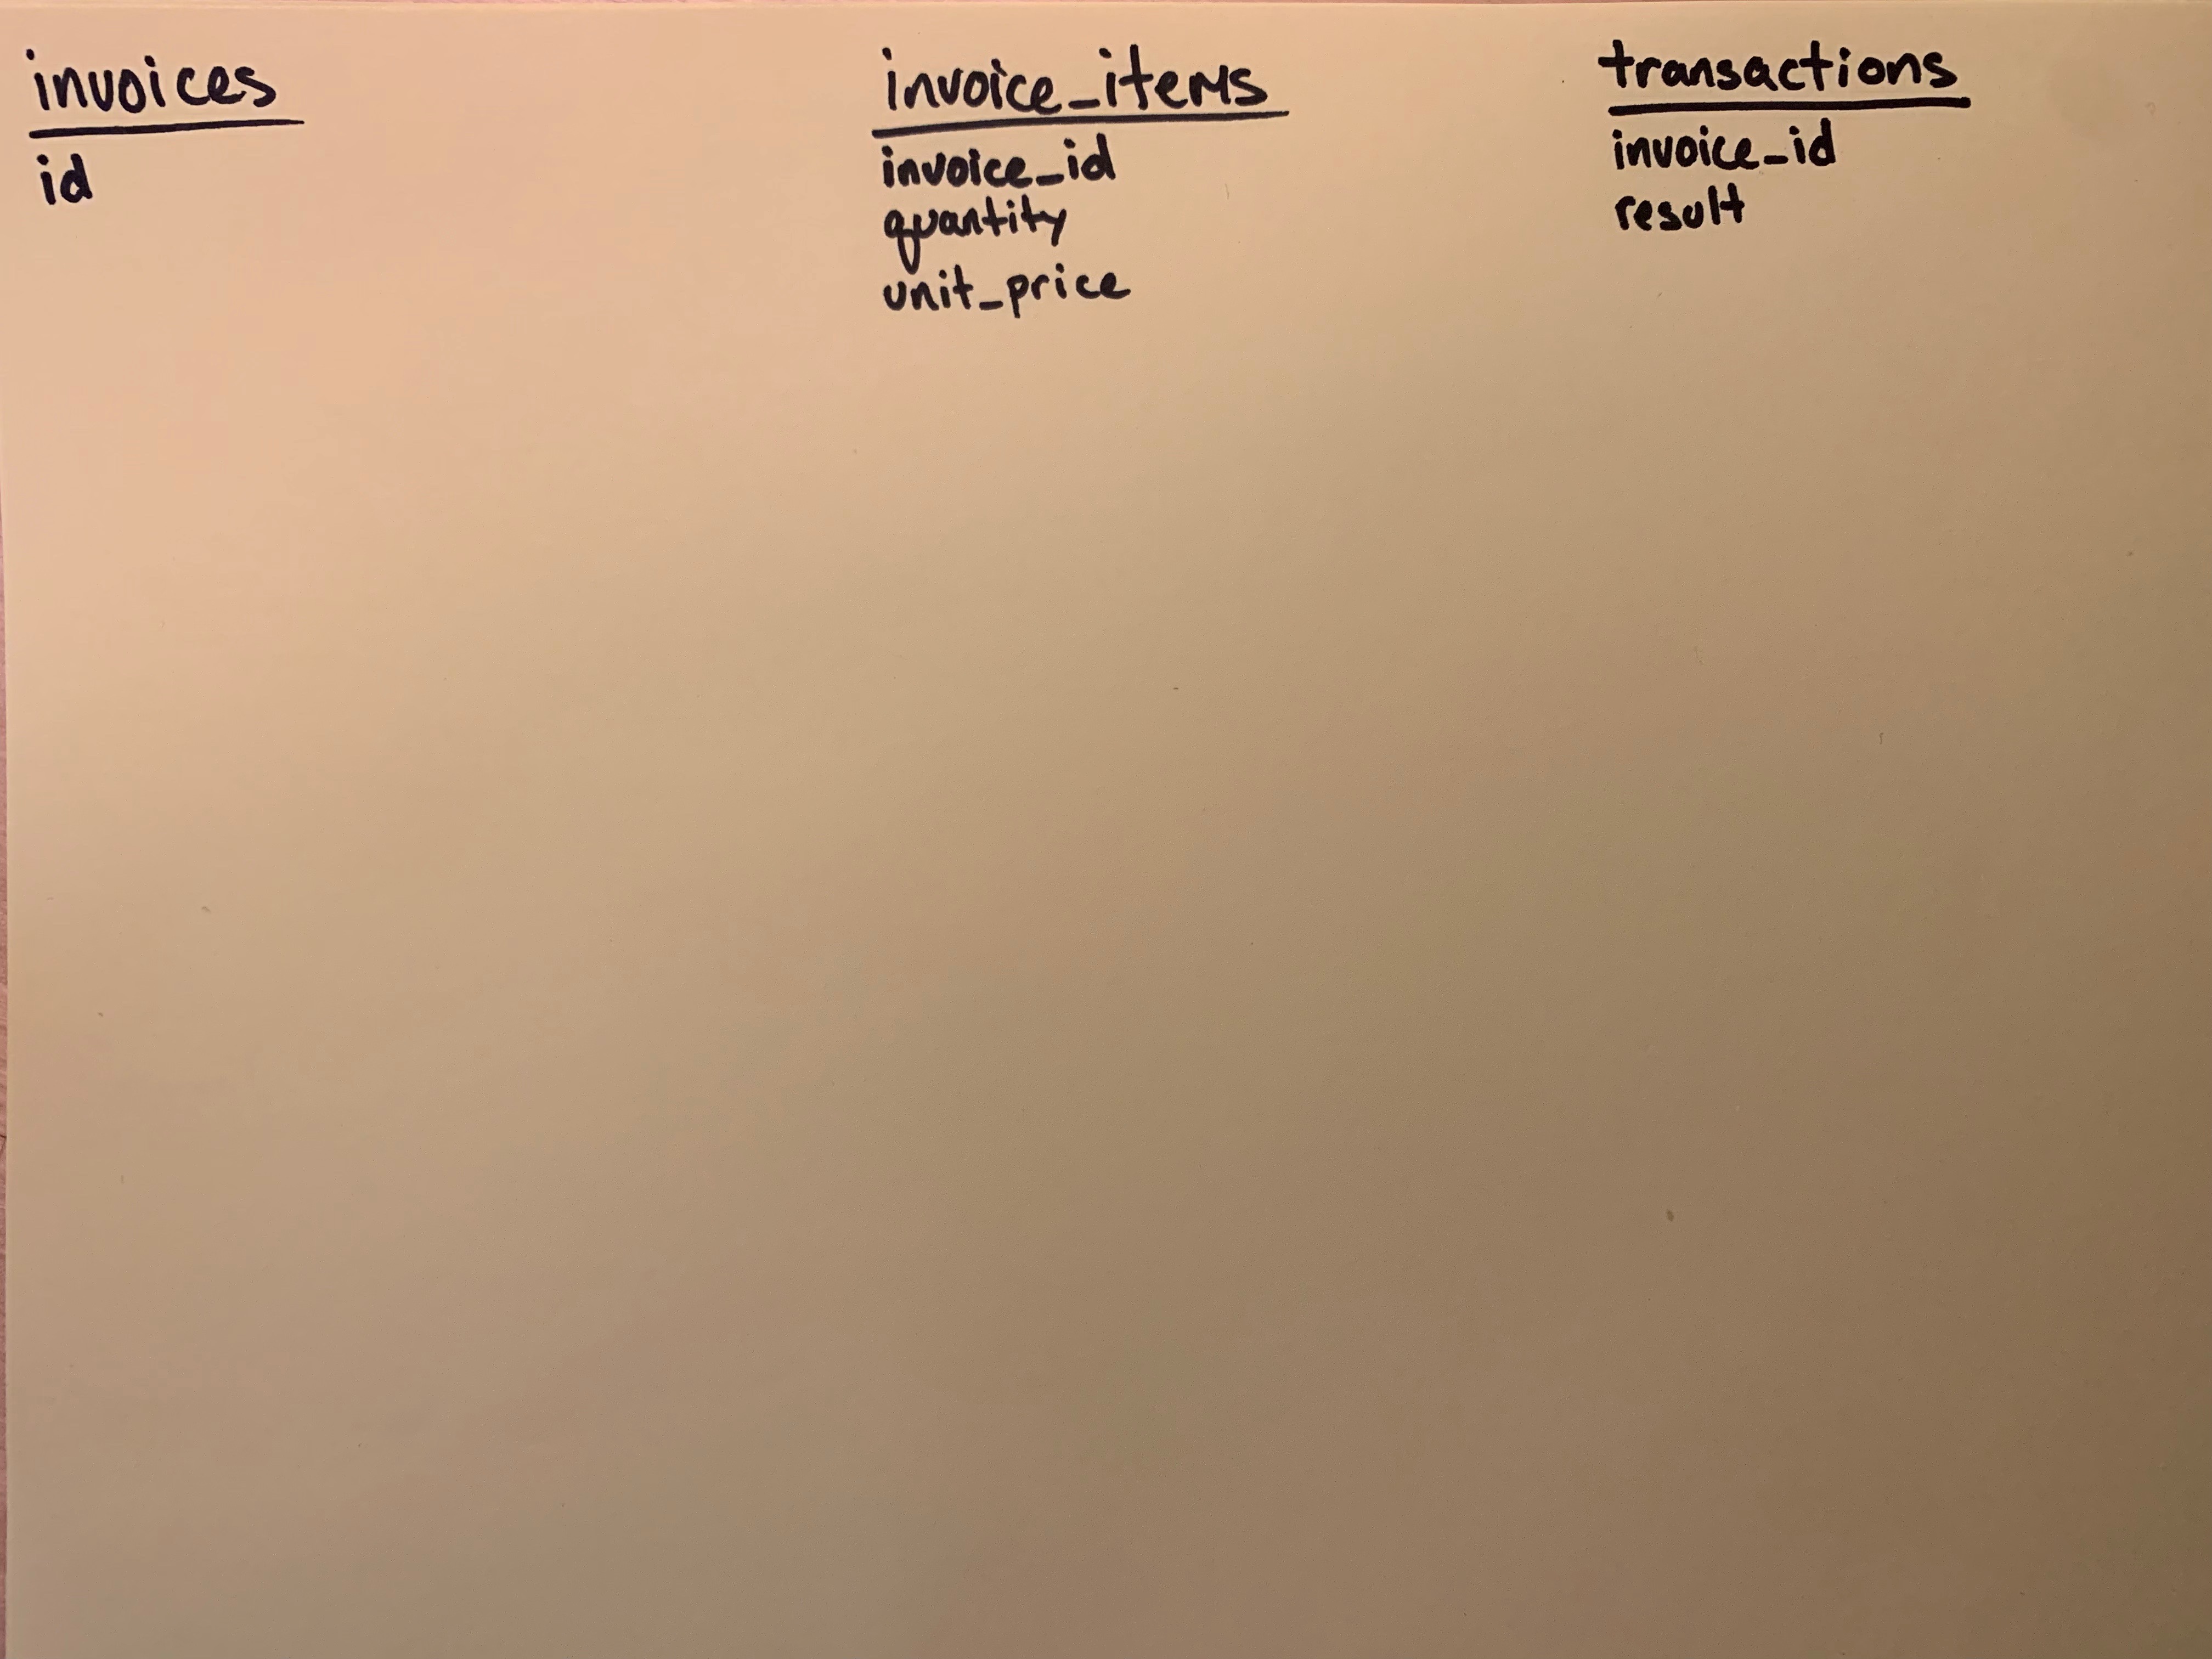 invoices
id
invoice_items
invoice_id
quantity
unit_price
transactions
invoice_id
result